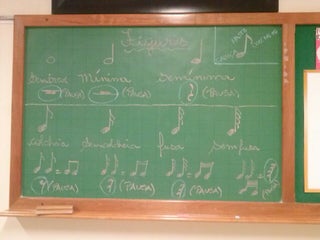 Figuras
CABEÇA HASTE
Semibreve Mínima Semínima
(PAUSA) (PAUSA) (PAUSA)
colcheia semicolcheia fusa semifusa
(PAUSA) (PAUSA) (PAUSA) (PAUSA)